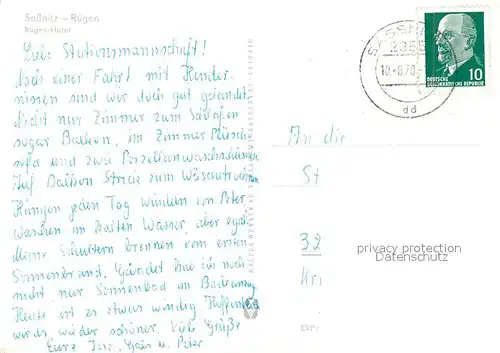 Saßnitz – Rügen
Rügen-Hotel
Liebe Stationsmannschaft!
Nach einer Fahrt mit Hinder-
nissen sind wir doch gut gelandet.
Nicht nur Zimmer zum Schlafen
sogar Balkon, im Zimmer Plüsch-
sofa und zwei Porzellanwaschschüsseln
Auf Balkon Strick zum Wäschetrocknen
Hängen jeden Tag Windeln von Peter
waschen im kalten Wasser, aber egal
meine Schultern brennen vom ersten
Sonnenbrand. Gebadet hab ich noch
nicht, nur Sonnenbad im Badeanzug
Heute ist es etwas windig hoffentlich
wird's wieder schöner. Viele Grüße
Eure u. Peter
10.-8.70
dd
10
DEUTSCHE
DEMOKRATISCHE REPUBLIK
An die
St
32
privacy protection
Datenschutz